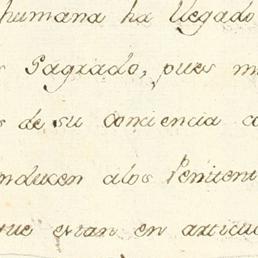 humana ha llegado
Sagrado, pues m
s de su conciencia co
nducen a los Peniten
que estan en articu